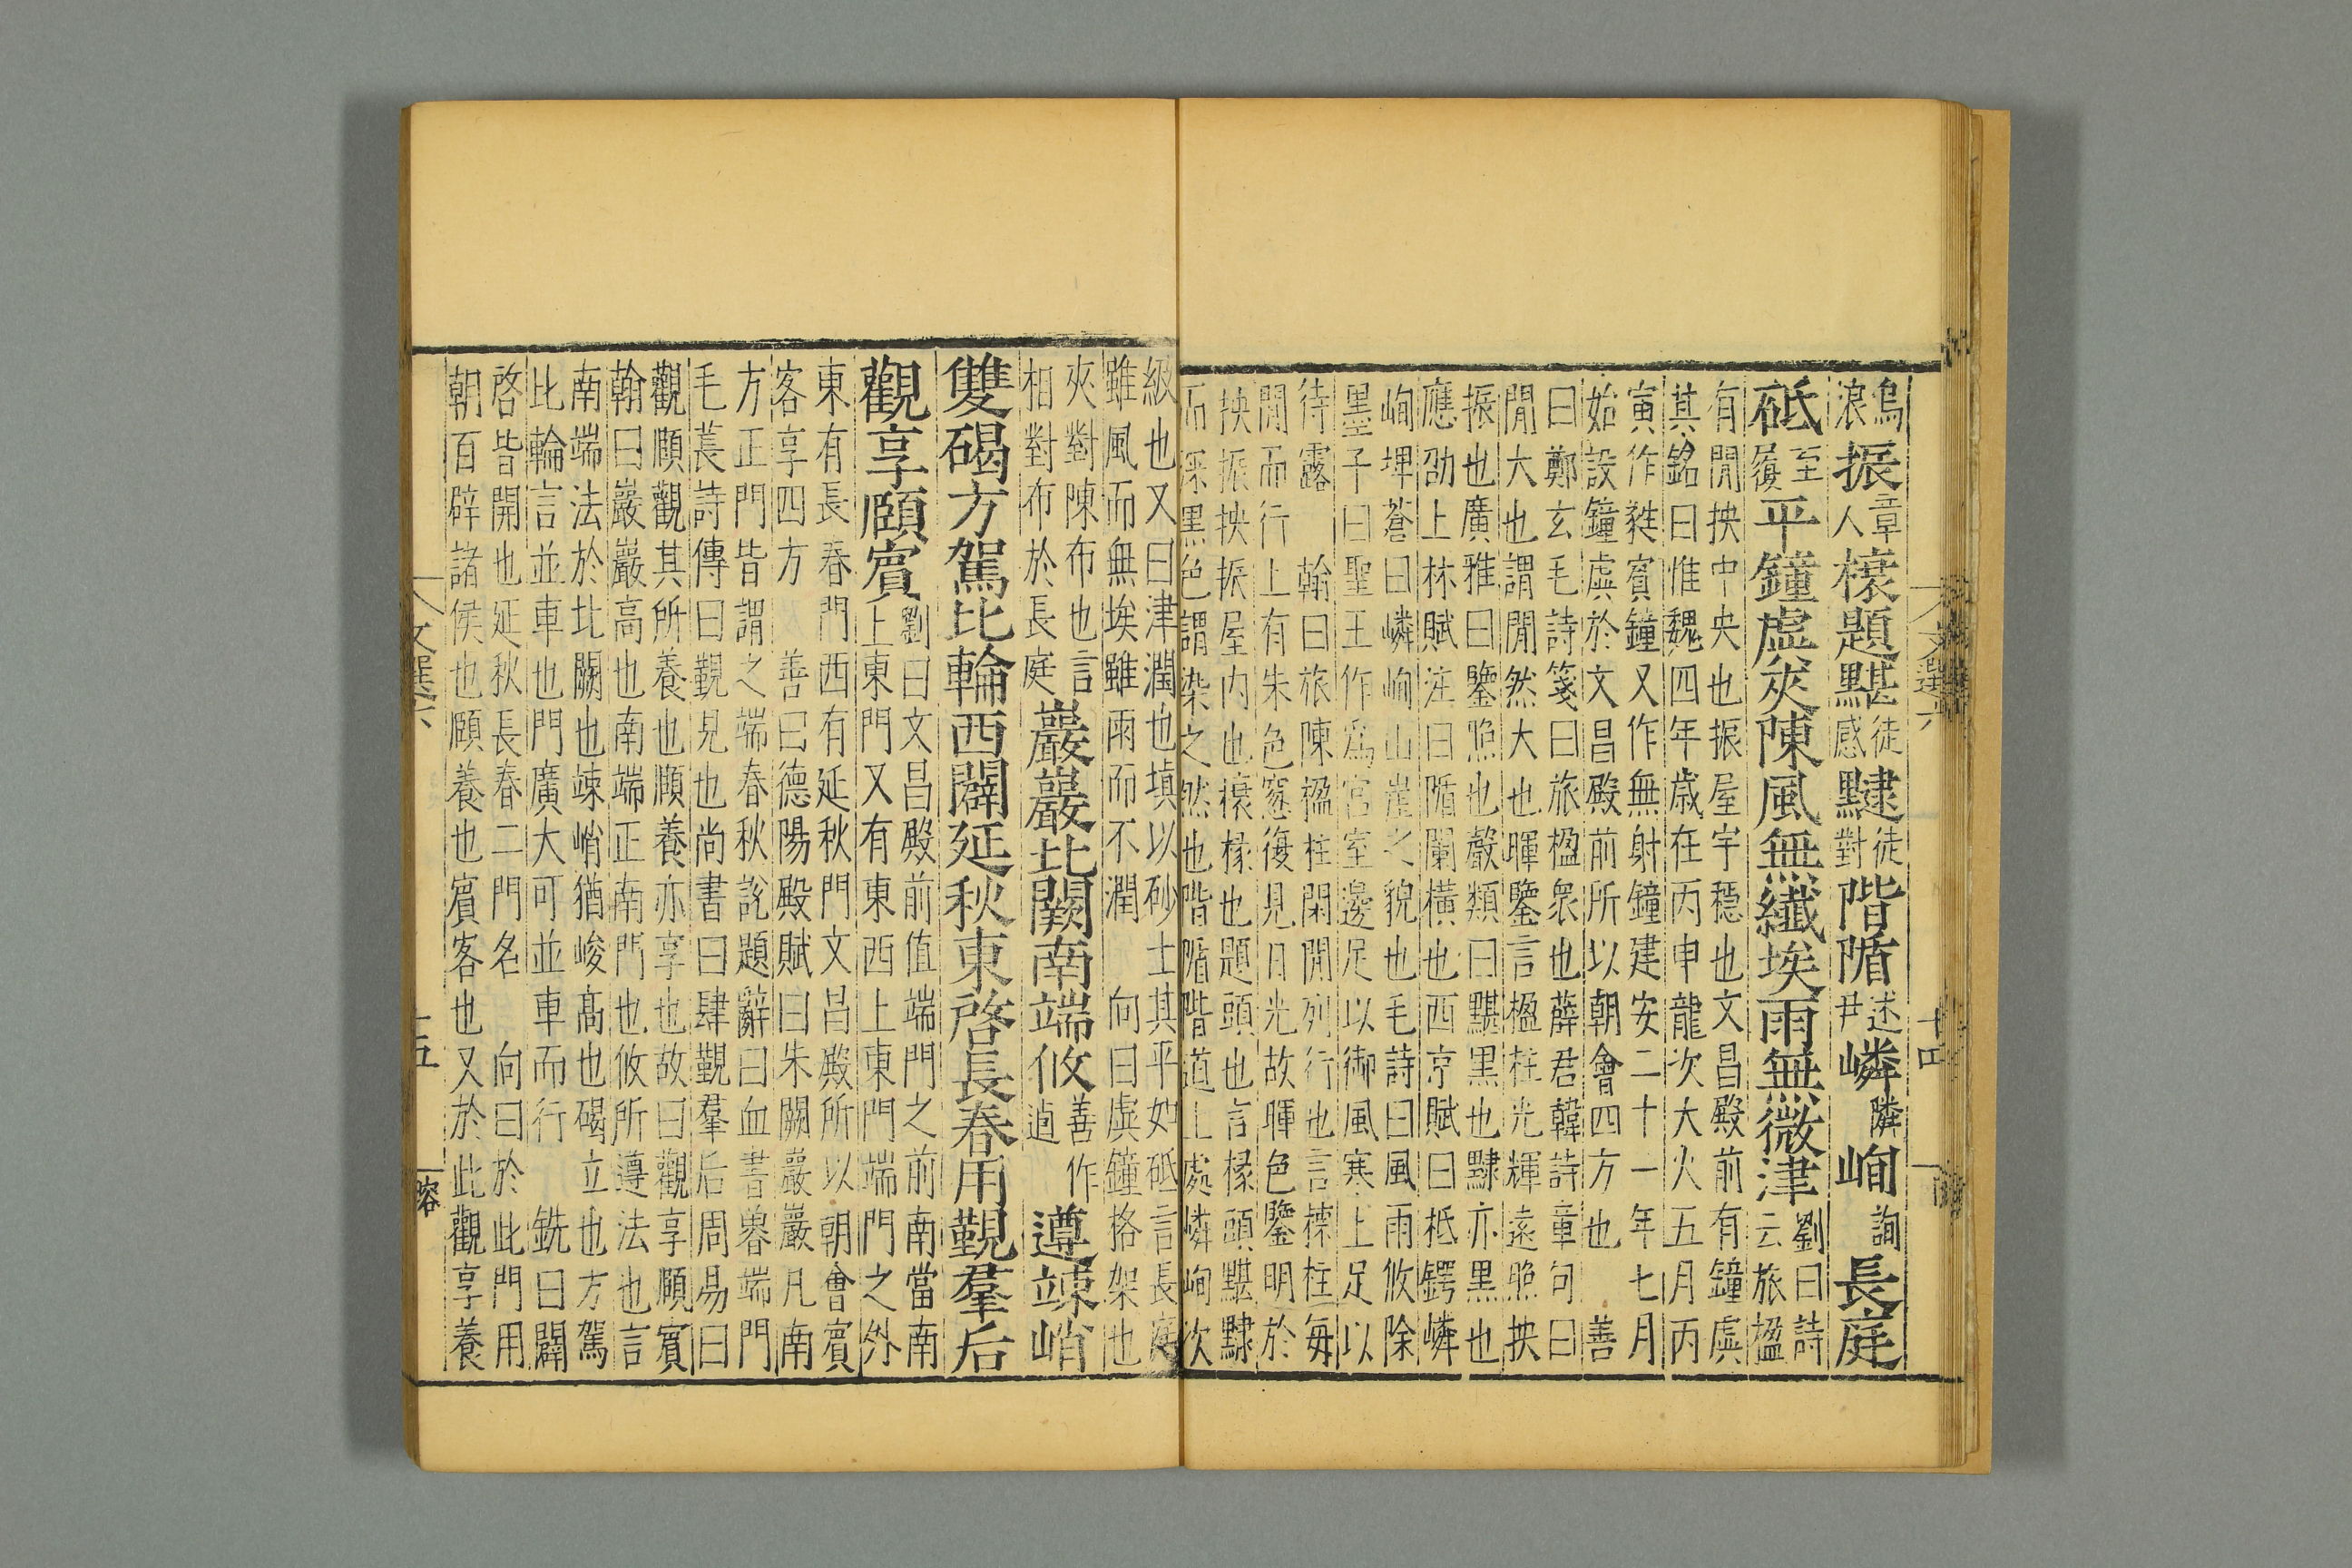 烏浪振章人榱題黮徒感䨴徒對階隯述尹嶙隣峋詢長庭
砥至履平鐘虡夾陳風無纖埃雨無微津劉曰詩云旅楹
有閒抰中央也振屋宇穩也文昌殿前有鐘虡
其銘曰惟魏四年歲在丙申龍次大火五月丙
寅作蕤賓鐘又作無射鐘建安二十一年七月
始設鐘虡於文昌殿前所以朝會四方也 善
曰鄭玄毛詩箋曰旅楹衆也薛君韓詩章句曰
閒大也謂閒然大也暉鑒言楹柱光輝遠照抰
振也廣雅曰鑒照也聲類曰黮黑也䨴亦黑也
應劭上林賦注曰隯闌橫也西京賦曰柢鍔嶙
峋埤蒼曰嶙峋山崖之貌也毛詩曰風雨攸除
墨子曰聖王作爲宮室邊足以御風寒上足以
待露 翰曰旅陳楹柱閑閒列行也言標柱每
閒而行上有朱色窻復見日光故暉色鑒明於
抰振抰振屋内也榱椽也題頭也言椽頭黮䨴
而深黑色謂染之然也階隯階道上處嶙峋次
文選六
十四
級也又曰津潤也塡以砂土其平如砥言長庭
雖風而無埃雖雨而不潤 向曰虡鐘格架也
夾對陳布也言相對布於長庭巖巖北闕南端攸善作逌遵竦峭
雙碣方駕比輪西闢延秋東啓長春用覲羣后
觀享頤賓劉曰文昌殿前值端門之前南當南上東門又有東西上東門端門之外
東有長春門西有延秋門文昌殿所以朝會賓
客享四方 善曰德陽殿賦曰朱闕巖巖凡南
方正門皆謂之端春秋說題辭曰血書魯端門
毛萇詩傳曰覲見也尚書曰肆覲羣后周易曰
觀頤觀其所養也頤養亦享也故曰觀享頤賓
翰曰巖巖高也南端正南門也攸所遵法也言
南端法於北闕也竦峭猶峻高也碣立也方駕
比輪言並車也門廣大可並車而行 銑曰闢
啓皆開也延秋長春二門名 向曰於此門用
朝百辟諸侯也頤養也賓客也又於此觀享養
文選六
十五